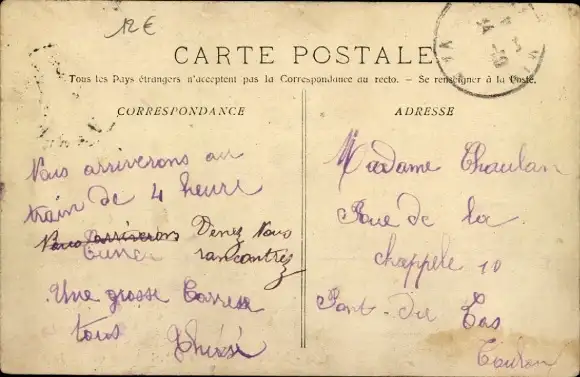 12 €
CARTE POSTALE
Tous les Pays étrangers n'acceptent pas la Correspondance au recto. — Se renseigner à la Poste.
CORRESPONDANCE
ADRESSE
Nous arriverons au
train de 4 heure
Nous arriverons Venez Nous
rancontrez
Une grosse Carresse
tous
Madame Chaulan
Rue de la
chappele 10
Pont du Las
Toulon